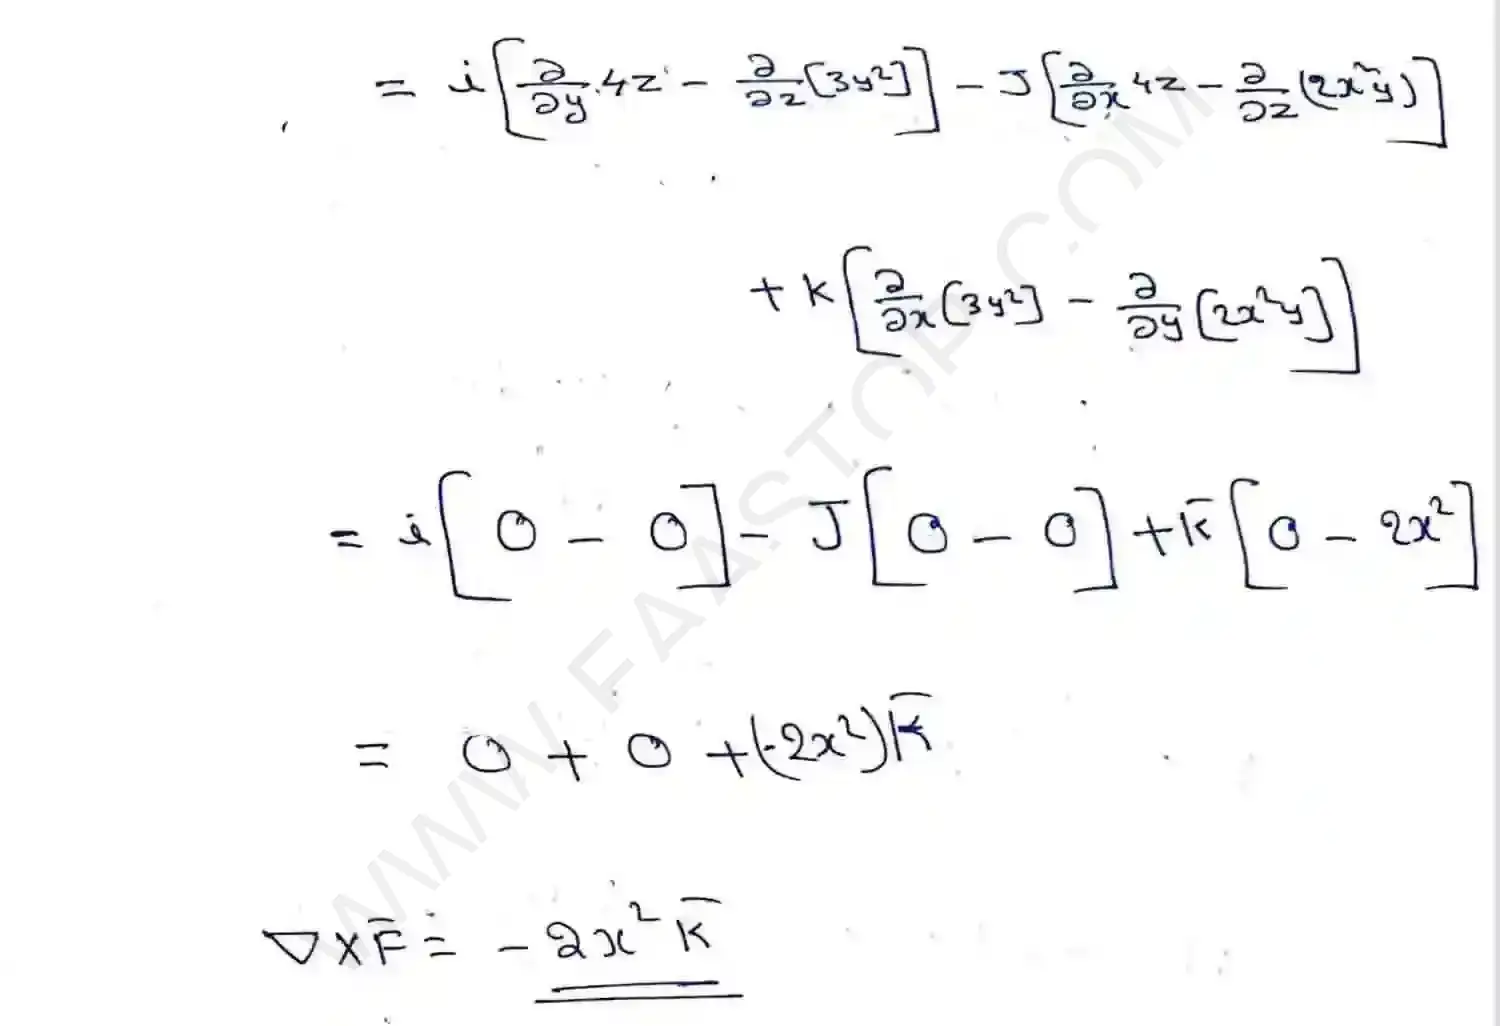 = i[∂/∂y .4z - ∂/∂z [3y²]] - J[∂/∂x 4z - ∂/∂z (2x²y)]
+ k[∂/∂x [3y²] - ∂/∂y [2x²y]]
= i[0 - 0] - J[0 - 0] + k̄[0 - 2x²]
= 0 + 0 + (-2x²)k̄
∇ x F̄ = - 2x² k̄
WWW.FAASTOP.COM